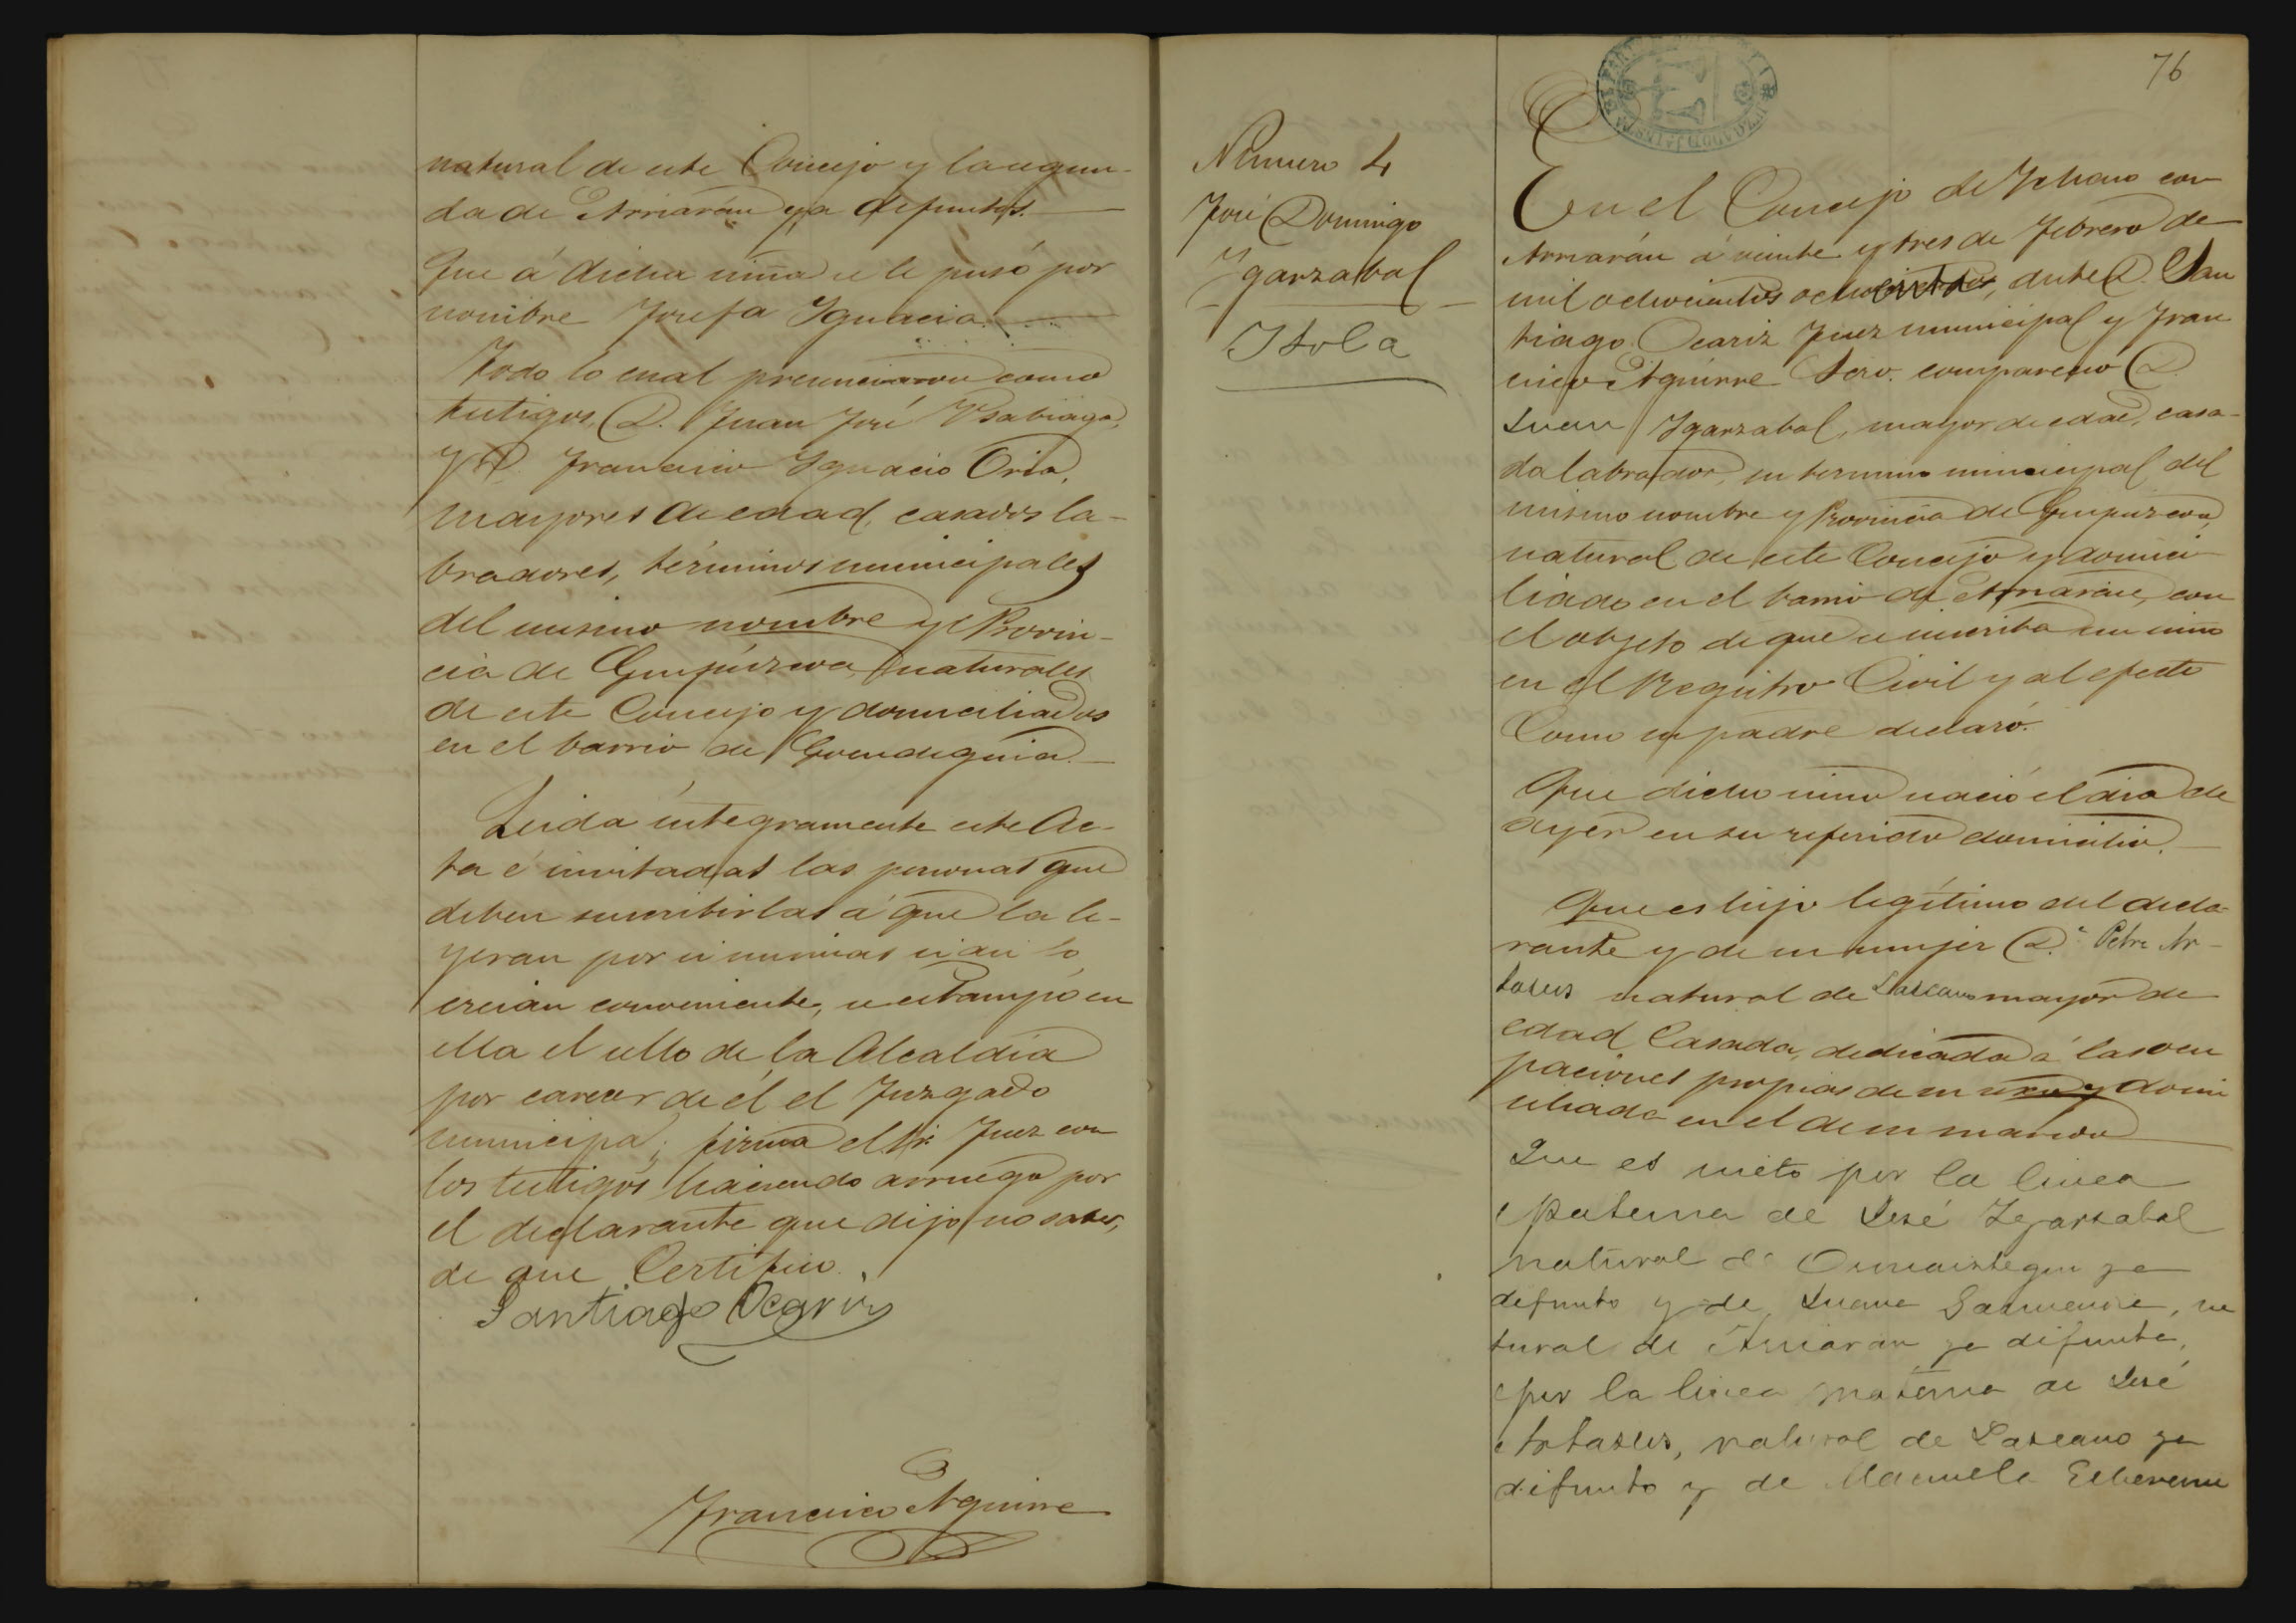 natural de este Concejo y la segun-
da de Arriarán ya defuntos.
Que á dicha niña se le pusó por
nombre Josefa Ygnacia.
Todo lo cual presenciaron como
testigos, D. Juan José Ysabiaga,
y D. Francisco Ygnacio Oria,
mayores de edad, casados la-
bradores, términos municipales
del mismo nombre y Provin-
cia de Guipúzcoa, naturales
de este Concejo y domiciliados
en el barrio de Goendeguia.
Leida integramente este Ac-
ta é invitadas las personas que
deben suscribirlas á que la le-
yeran por si mismas si asi lo
creian conveniente, se estampó en
ella el sello de la Alcaldia
por carecer de él el Juzgado
municipal; firma el Sr. Juez con
los testigos haciendo arruego por
el declarante que dijo no saber,
de que Certifico.
Santiago Ocariz
Francisco Aguirre
76
Número 4
José Domingo
Ygarzabal
Itola
En el Concejo de Ychaso con
Arriarán á veinte y tres de Febrero de
mil ochocientos, ante D. San
tiago Ocariz Juez municipal y Fran
cisco Aguirre Scro. compareció D.
Juan Ygarzabal, mayor de edad, casa-
do labrador, en termino municipal del
mismo nombre y Provincia de Guipuzcoa,
natural de este Concejo y domici
liado en el barrio de Arriarán, con
el objeto de que se inscriba un niño
en el Registro Civil y al efecto
Como su padre declaró.
Que dicho niño nació el dia de
ayer en su referido domicilio.
Que es hijo legítimo del decla-
rante y de su mujer D.ª Petra Ar-
tasus natural de Lazcano mayor de
edad Casada, dedicada á las ocu
paciones propias de su sexo y domi
ciliada en el de su marido
Que es nieto por la linea
paterna de José Igarzabal
natural de Ormaiztegui ya
defunto y de Juana, na
tural de Arriaran ya difunta,
por la linea materna de José
Artasus, natural de Lazcano ya
difunto y de Manuela